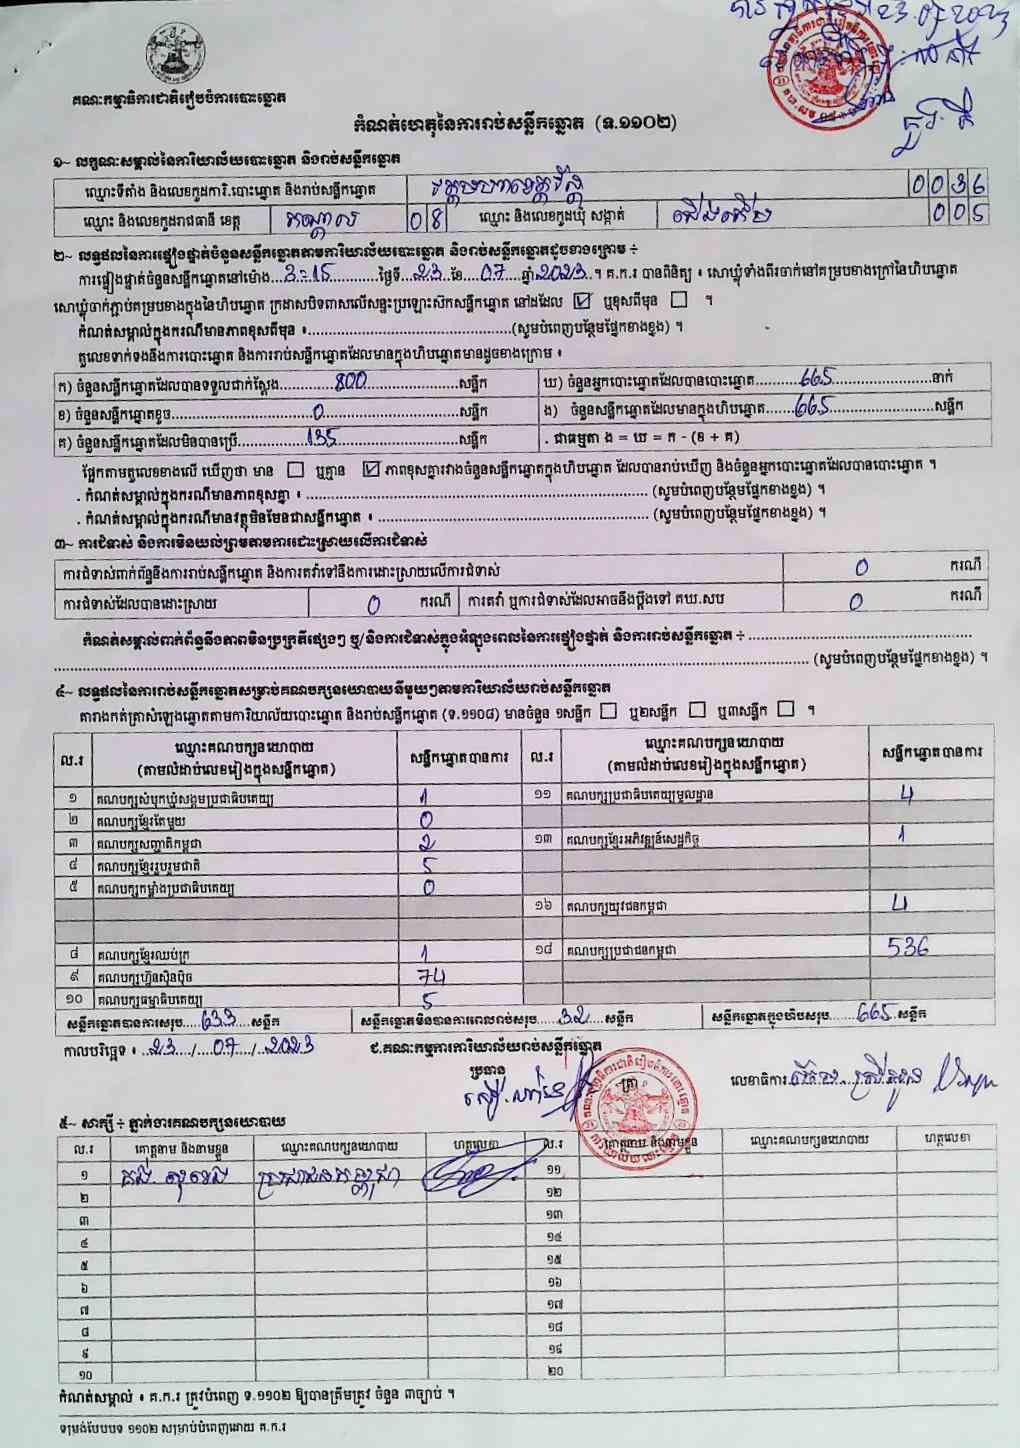 23.07.2023
គណៈកម្មាធិការជាតិរៀបចំការបោះឆ្នោត
កំណត់ហេតុនៃការរាប់សន្លឹកឆ្នោត (ទ.១១០២)
១~ លក្ខណៈសម្គាល់នៃការិយាល័យបោះឆ្នោត និងរាប់សន្លឹកឆ្នោត
ឈ្មោះទីតាំង និងលេខកូដការិ.បោះឆ្នោត និងរាប់សន្លឹកឆ្នោត 0036
ឈ្មោះ និងលេខកូដរាជធានី ខេត្ត កណ្តាល 08 ឈ្មោះ និងលេខកូដឃុំ សង្កាត់ ជើងកើប 005
២~ លទ្ធផលនៃការផ្ទៀងផ្ទាត់ចំនួនសន្លឹកឆ្នោតតាមការិយាល័យបោះឆ្នោត និងរាប់សន្លឹកឆ្នោតដូចខាងក្រោម ÷
ការផ្ទៀងផ្ទាត់ចំនួនសន្លឹកឆ្នោតនៅម៉ោង 3:15 ថ្ងៃទី 23 ខែ 07 ឆ្នាំ 2023 ។ គ.ក.រ បានពិនិត្យ ៖ សោឃ្មុំទាំងពីរចាក់នៅគម្របខាងក្រៅនៃហិបឆ្នោត
សោឃ្មុំចាក់ភ្ជាប់គម្របខាងក្នុងនៃហិបឆ្នោត ក្រដាសបិទពាសលើសន្ទះប្រឡោះស៊កសន្លឹកឆ្នោត នៅដដែល ☑ ឬខុសពីមុន ☐ ។
កំណត់សម្គាល់ក្នុងករណីមានភាពខុសពីមុន ៖ (សូមបំពេញបន្ថែមផ្នែកខាងខ្នង) ។
តួលេខទាក់ទងនឹងការបោះឆ្នោត និងការរាប់សន្លឹកឆ្នោតដែលមានក្នុងហិបឆ្នោតមានដូចខាងក្រោម ៖
ក) ចំនួនសន្លឹកឆ្នោតដែលបានទទួលជាក់ស្តែង 800 សន្លឹក ឃ) ចំនួនអ្នកបោះឆ្នោតដែលបានបោះឆ្នោត 665 នាក់
ខ) ចំនួនសន្លឹកឆ្នោតខូច 0 សន្លឹក ង) ចំនួនសន្លឹកឆ្នោតដែលមានក្នុងហិបឆ្នោត 665 សន្លឹក
គ) ចំនួនសន្លឹកឆ្នោតដែលមិនបានប្រើ 135 សន្លឹក . ជាធម្មតា ង = ឃ = ក - (ខ + គ)
ផ្អែកតាមតួលេខខាងលើ ឃើញថា មាន ☐ ឬគ្មាន ☑ ភាពខុសគ្នារវាងចំនួនសន្លឹកឆ្នោតក្នុងហិបឆ្នោត ដែលបានរាប់ឃើញ និងចំនួនអ្នកបោះឆ្នោតដែលបានបោះឆ្នោត ។
. កំណត់សម្គាល់ក្នុងករណីមានភាពខុសគ្នា ៖ (សូមបំពេញបន្ថែមផ្នែកខាងខ្នង) ។
. កំណត់សម្គាល់ក្នុងករណីមានវត្ថុមិនមែនជាសន្លឹកឆ្នោត ៖ (សូមបំពេញបន្ថែមផ្នែកខាងខ្នង) ។
៣~ ការជំទាស់ និងការមិនយល់ព្រមតាមការដោះស្រាយលើការជំទាស់
ការជំទាស់ពាក់ព័ន្ធនឹងការរាប់សន្លឹកឆ្នោត និងការតវ៉ាទៅនឹងការដោះស្រាយលើការជំទាស់ 0 ករណី
ការជំទាស់ដែលបានដោះស្រាយ 0 ករណី ការតវ៉ា ឬការជំទាស់ដែលអាចនឹងប្តឹងទៅ គឃ.សប 0 ករណី
កំណត់សម្គាល់ពាក់ព័ន្ធនឹងភាពមិនប្រក្រតីផ្សេងៗ ឬ/និងការជំទាស់ក្នុងអំឡុងពេលនៃការផ្ទៀងផ្ទាត់ និងការរាប់សន្លឹកឆ្នោត ÷
(សូមបំពេញបន្ថែមផ្នែកខាងខ្នង) ។
៤~ លទ្ធផលនៃការរាប់សន្លឹកឆ្នោតសម្រាប់គណបក្សនយោបាយនីមួយៗតាមការិយាល័យរាប់សន្លឹកឆ្នោត
តារាងកត់ត្រាសំឡេងឆ្នោតតាមការិយាល័យបោះឆ្នោត និងរាប់សន្លឹកឆ្នោត (ទ.១១០៨) មានចំនួន ១សន្លឹក ☐ ឬ២សន្លឹក ☐ ឬ៣សន្លឹក ☐ ។
ល.រ ឈ្មោះគណបក្សនយោបាយ (តាមលំដាប់លេខរៀងក្នុងសន្លឹកឆ្នោត) សន្លឹកឆ្នោតបានការ ល.រ ឈ្មោះគណបក្សនយោបាយ (តាមលំដាប់លេខរៀងក្នុងសន្លឹកឆ្នោត) សន្លឹកឆ្នោតបានការ
១ គណបក្សសំបុកឃ្មុំសង្គមប្រជាធិបតេយ្យ 1 ១១ គណបក្សប្រជាធិបតេយ្យមូលដ្ឋាន 4
២ គណបក្សខ្មែរតែមួយ 0
៣ គណបក្សសញ្ជាតិកម្ពុជា 2 ១៣ គណបក្សខ្មែរអភិវឌ្ឍន៍សេដ្ឋកិច្ច 1
៤ គណបក្សខ្មែររួបរួមជាតិ 5
៥ គណបក្សកម្លាំងប្រជាធិបតេយ្យ 0
១៦ គណបក្សយុវជនកម្ពុជា 4
៨ គណបក្សខ្មែរឈប់ក្រ 1 ១៨ គណបក្សប្រជាជនកម្ពុជា 536
៩ គណបក្សហ៊្វុនស៊ិនប៉ិច 74
១០ គណបក្សធម្មាធិបតេយ្យ 5
សន្លឹកឆ្នោតបានការសរុប 633 សន្លឹក សន្លឹកឆ្នោតមិនបានការពេលរាប់សរុប 32 សន្លឹក សន្លឹកឆ្នោតក្នុងហិបសរុប 665 សន្លឹក
កាលបរិច្ឆេទ ៖ 23/07/2023 ជ.គណៈកម្មការការិយាល័យរាប់សន្លឹកឆ្នោត
ប្រធាន ត្រា លេខាធិការ
៥~ សាក្សី ÷ ភ្នាក់ងារគណបក្សនយោបាយ
ល.រ គោត្តនាម និងនាមខ្លួន ឈ្មោះគណបក្សនយោបាយ ហត្ថលេខា ល.រ គោត្តនាម និងនាមខ្លួន ឈ្មោះគណបក្សនយោបាយ ហត្ថលេខា
១ ប្រជាជនកម្ពុជា ១១
២ ១២
៣ ១៣
៤ ១៤
៥ ១៥
៦ ១៦
៧ ១៧
៨ ១៨
៩ ១៩
១០ ២០
កំណត់សម្គាល់ ៖ គ.ក.រ ត្រូវបំពេញ ទ.១១០២ ឱ្យបានត្រឹមត្រូវ ចំនួន ៣ច្បាប់ ។
ទម្រង់បែបបទ ១១០២ សម្រាប់បំពេញដោយ គ.ក.រ